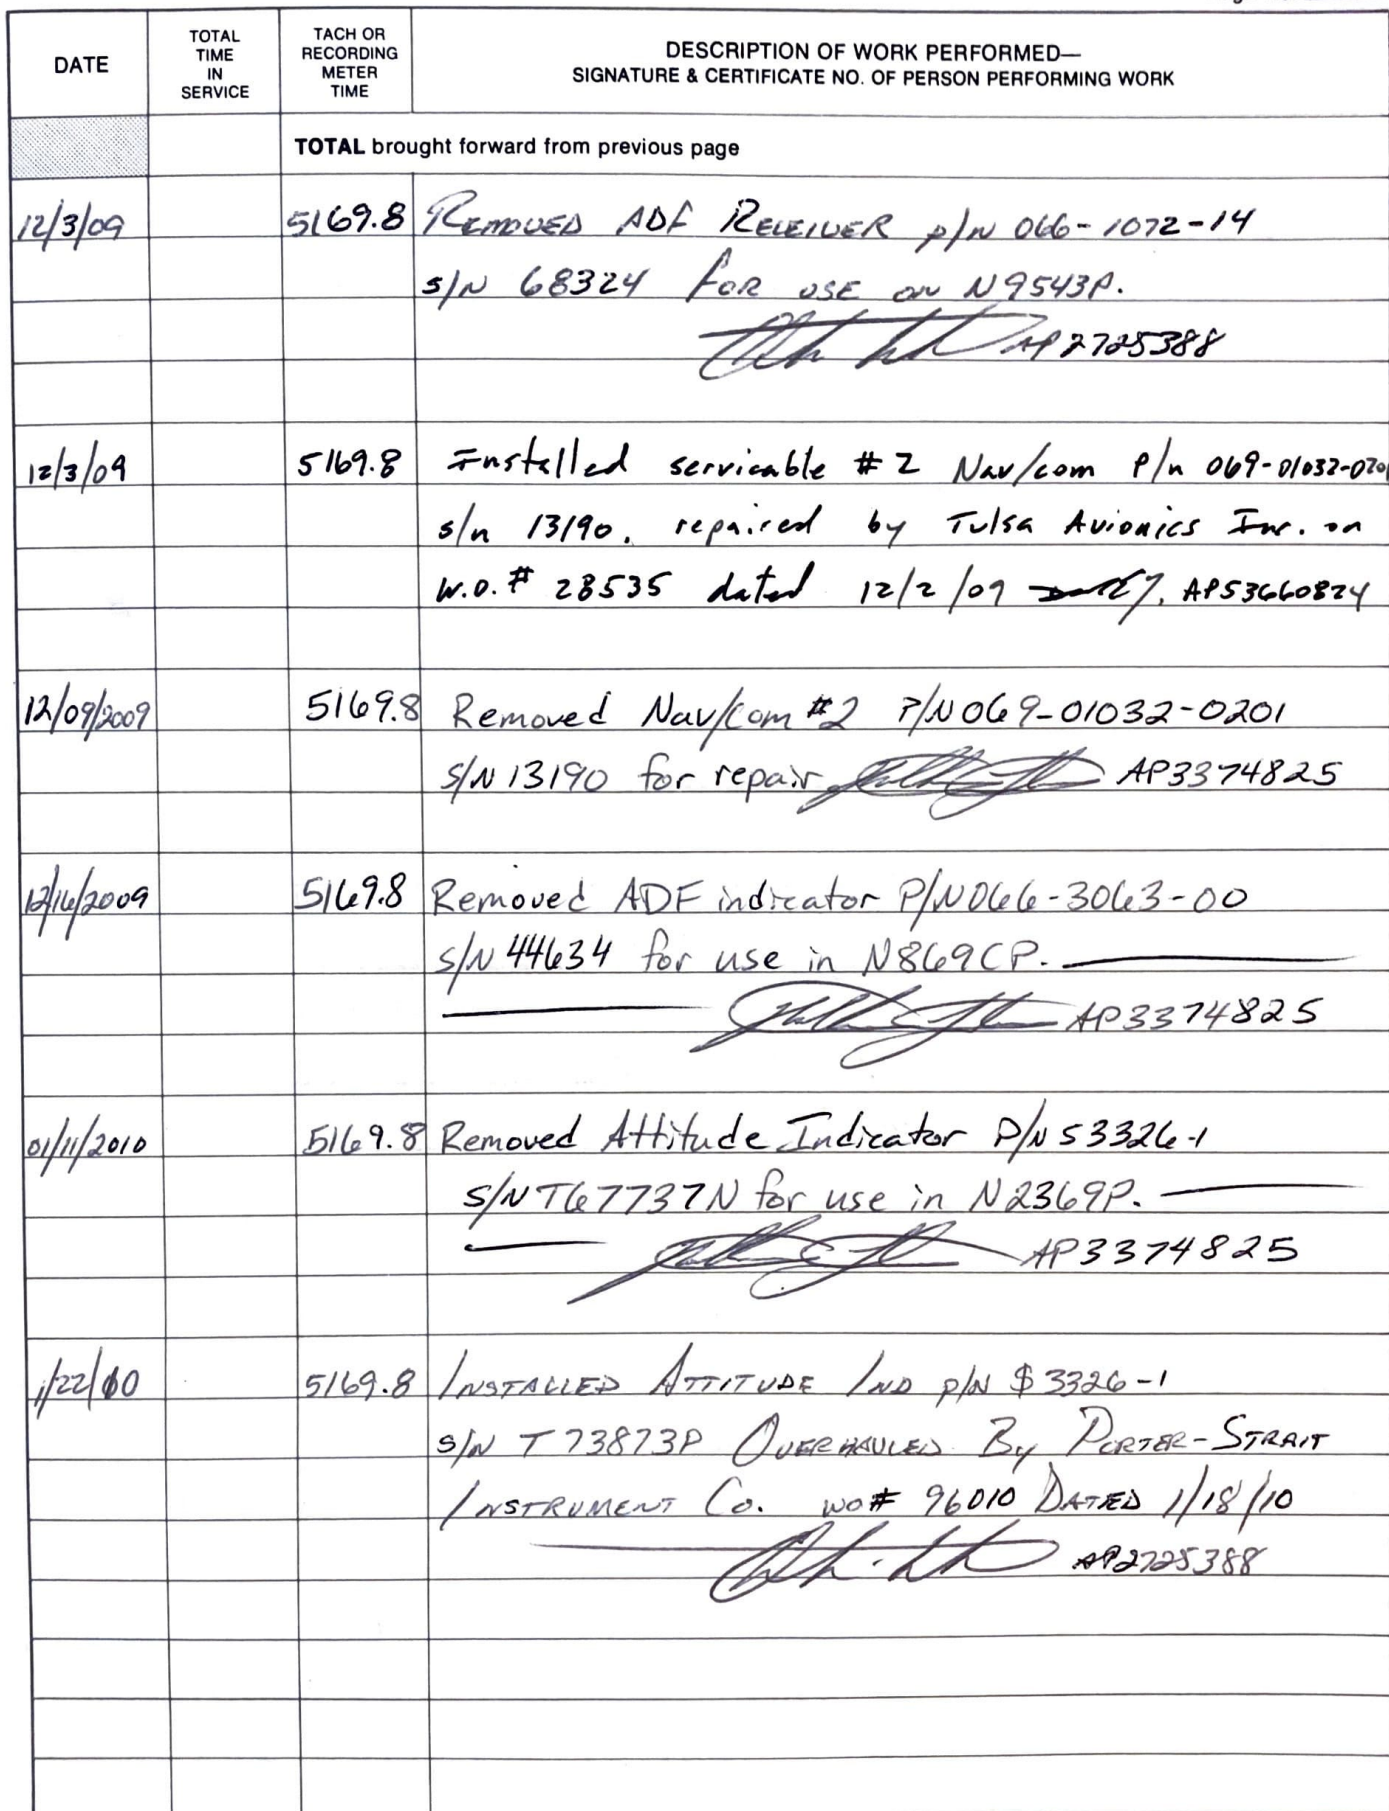 DATE
TOTAL
TIME
IN
SERVICE
TACH OR
RECORDING
METER
TIME
DESCRIPTION OF WORK PERFORMED—
SIGNATURE & CERTIFICATE NO. OF PERSON PERFORMING WORK
TOTAL brought forward from previous page
12/3/09 5169.8 REMOVED ADF RECEIVER P/N 066-1072-14
S/N 68324 FOR USE ON N9543P.
AP 2725388
12/3/09 5169.8 Installed servicable #2 Nav/com P/n 069-01032-0201
s/n 13190. repaired by Tulsa Avionics Inc. on
W.O.# 28535 dated 12/2/09 AP53660824
12/09/2009 5169.8 Removed Nav/Com #2 P/N 069-01032-0201
S/N 13190 for repair AP3374825
12/16/2009 5169.8 Removed ADF indicator P/N 066-3063-00
S/N 44634 for use in N869CP.
AP3374825
01/11/2010 5169.8 Removed Attitude Indicator P/N 53326-1
S/N T67737N for use in N2369P.
AP3374825
1/22/10 5169.8 INSTALLED ATTITUDE IND P/N 53326-1
S/N T73873P OVERHAULED BY PORTER-STRAIT
INSTRUMENT CO. WO# 96010 DATED 1/18/10
AP2725388